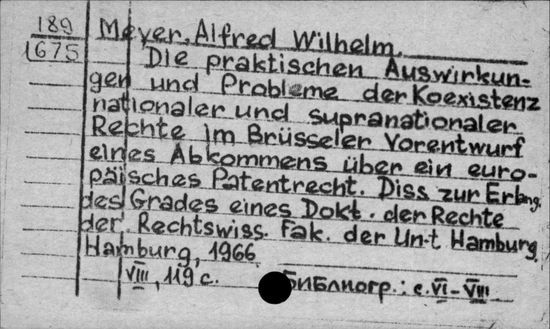 189
1675
Meyer, Alfred Wilhelm.
Die praktischen Auswirkun-
gen und Probleme der Koexistenz
nationaler und supranationaler
Rechte im Brüsseler Vorentwurf
eines Abkommens über ein euro-
päisches Patentrecht. Diss zur Erlang.
des Grades eines Dokt. der Rechte
der Rechtswiss. Fak. der Un-t Hamburg.
Hamburg, 1966.
VIII, 119 c.
Библиогр.: c. VI-VIII